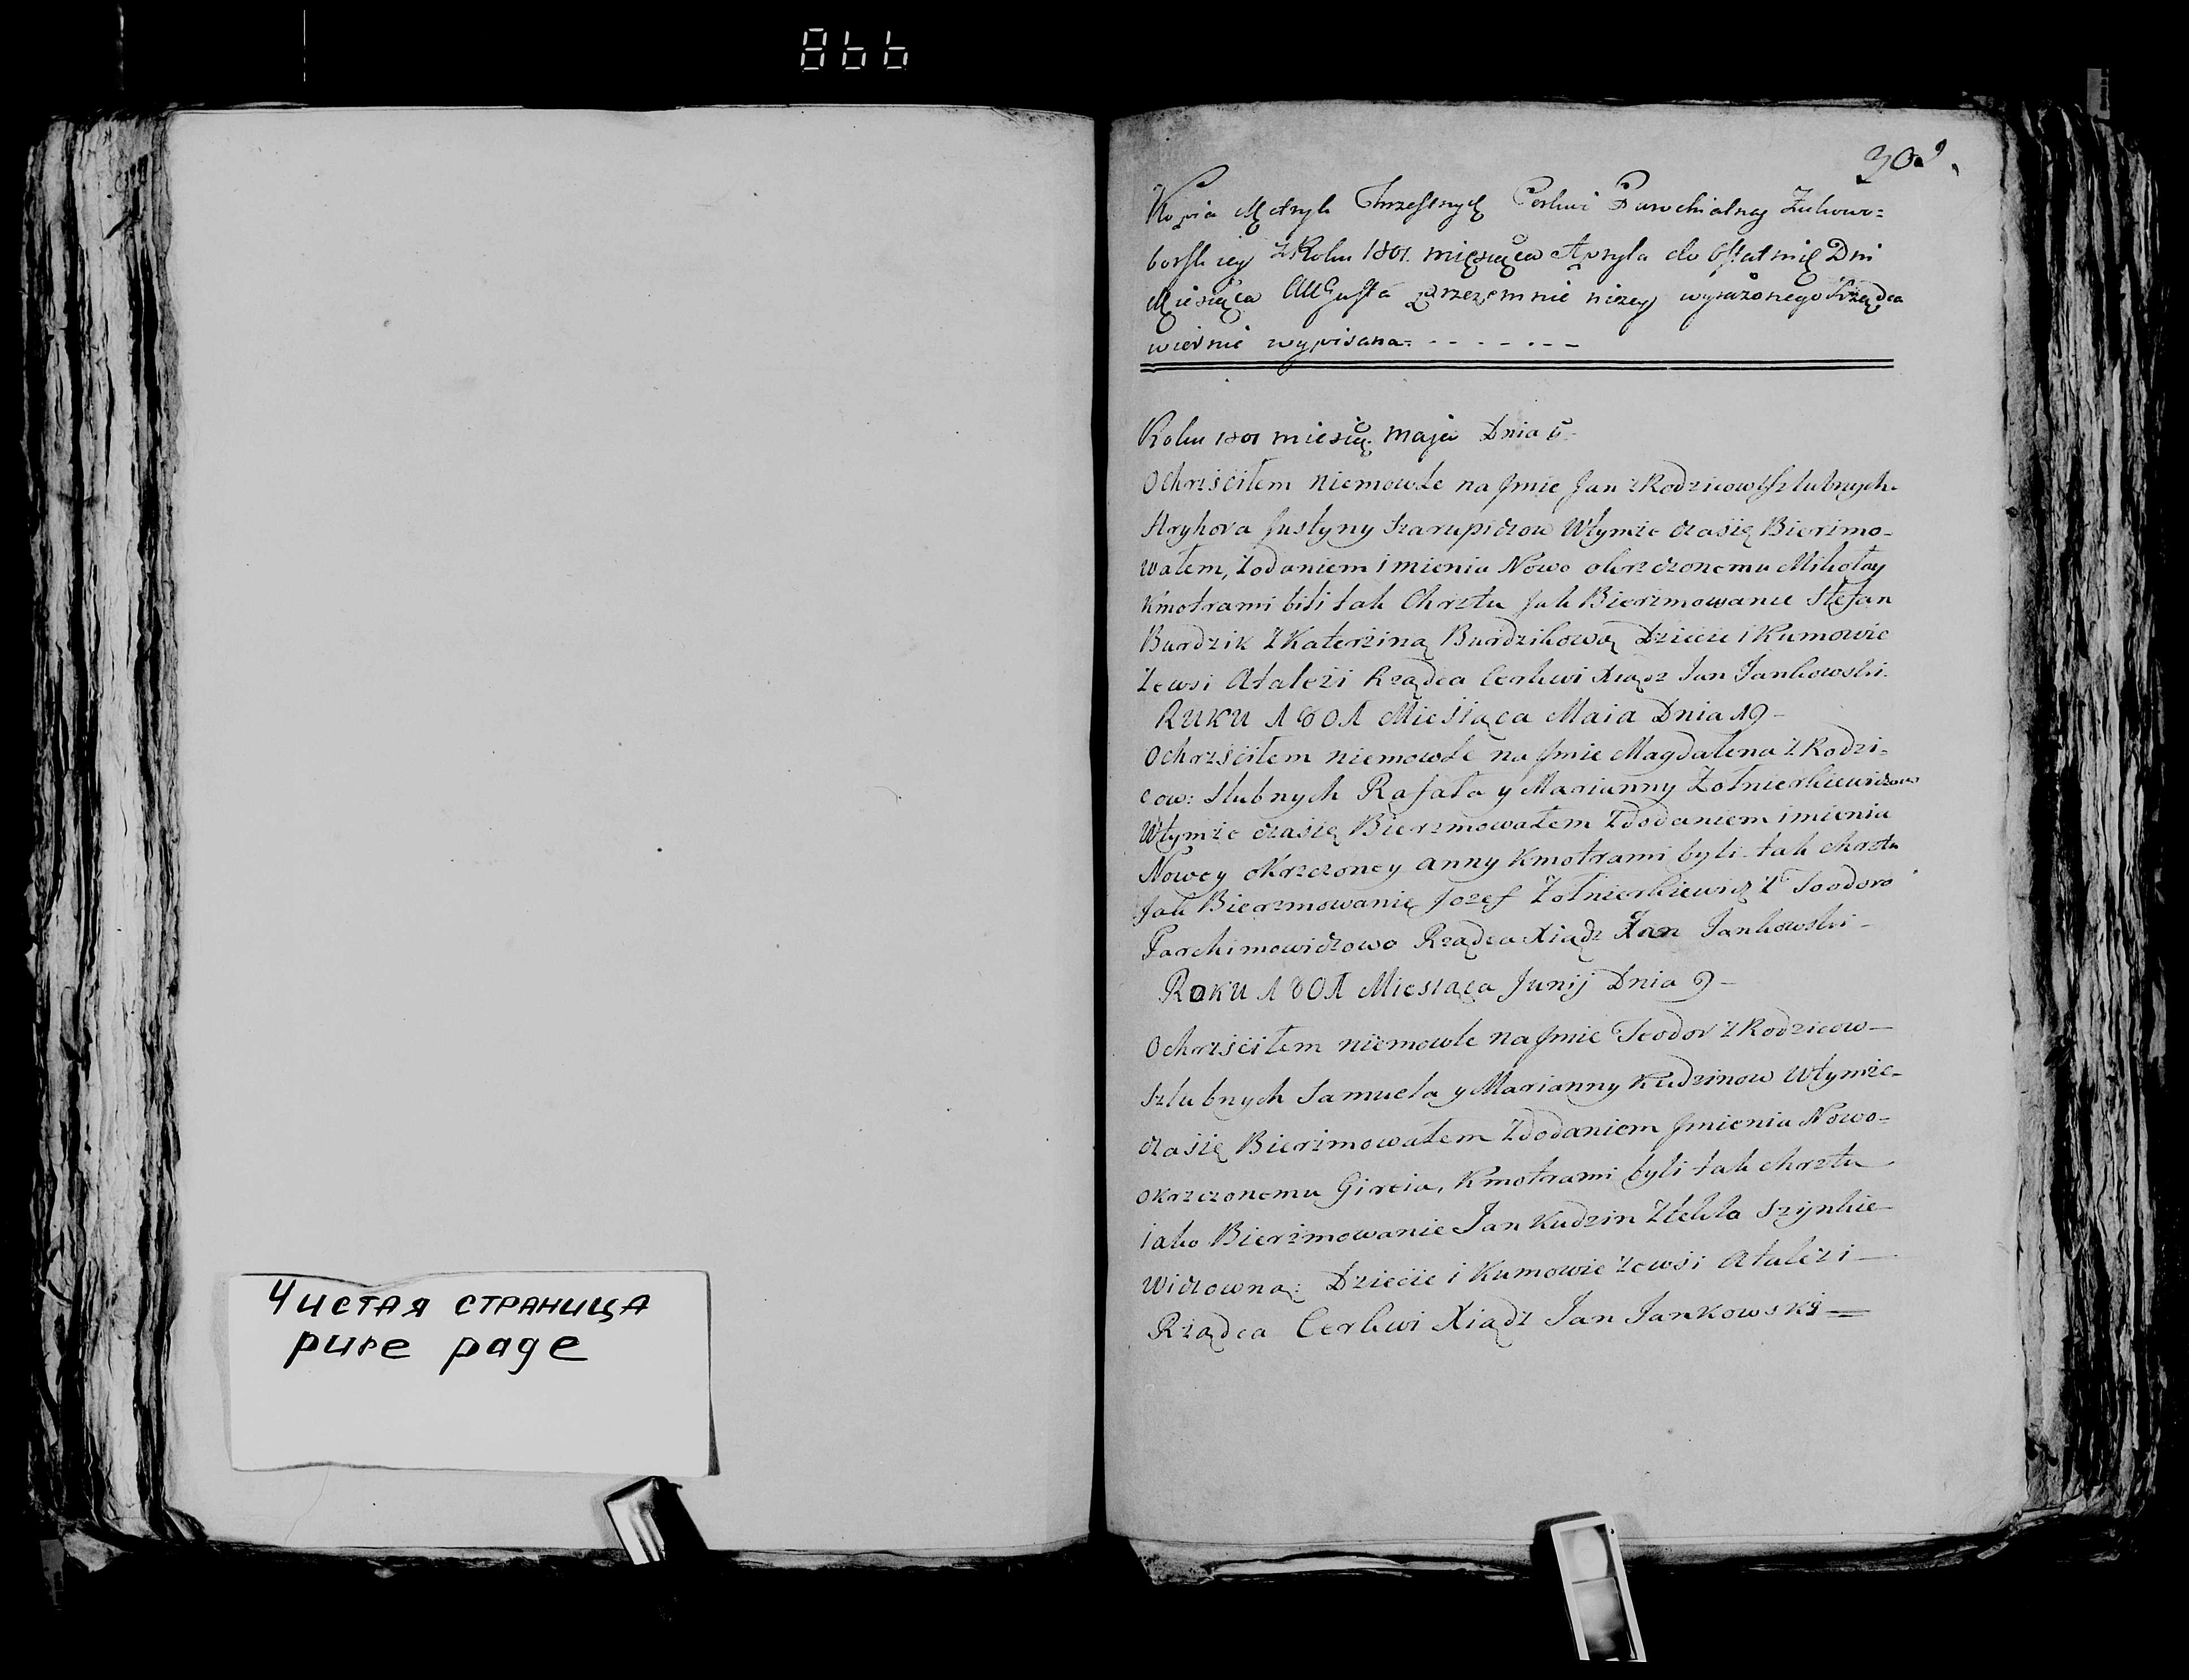 866
Чистая страница
pure page
Kopia Metryk Chrzestnych Cerkwi Parochialney Zuhowo=
borskiey z Roku 1801. miesiąca Apryla do Ostatnię Dni
Miesiąca Augusta przezemnie niżey wyrażonego Rządca
wiernie wypisana.- - - - - - -
Roku 1801 miesią: maja Dnia 6-
Ochrzściłem niemowle na Jmie Jan z Rodzicow Szlubnych
Hryhora Justyny Szarupiczow Wtymże czasię Bierzmo-
wałem, zodaniem imienia Nowo okrzczonemu Mikołay
Kmotrami bili tak Chrztu Jak Bierzmowanie Stefan
Burdzik z Katerziną Burdzikową Dziecie i Kumowie
zewsi Atałeżi Rządca Cerkwi Xiądz Jan Jankowski.
RUKU 1801 Miesiąca Maia Dnia 19-
Ochrzściłem niemowle na Jmie Magdalena z Rodzi-
cow: Slubnych Rafała y Marianny Zołnierkiewiczow
Wtymże czasię Bierzmowałem zdodaniem imienia
Nowey okrzczoney anny Kmotrami byli tak chrztu
Jak Bierzmowanię Jozef Zołnierkiewicz z Teodoro
Parchimowiczowo Rządca Xiądz Jan Jankowski-
ROKU 1801 Miesiąca Junij Dnia 9-
Ochrzściłem niemowle na Jmie Teodor z Rodzicow-
Szlubnych Samuela y Marianny Kudzinow Wtymże-
czasię Bierzmowałem zdodaniem Jmienia Nowo-
okrzczonemu Gircia, Kmotrami byli tak chrztu
iako Bierzmowanie Jan Kudzin z Tekla Szynkie-
wiczowną: Dziecie i Kumowie zewsi Atałeżi-
Rządca Cerkwi Xiądz Jan Jankowski=